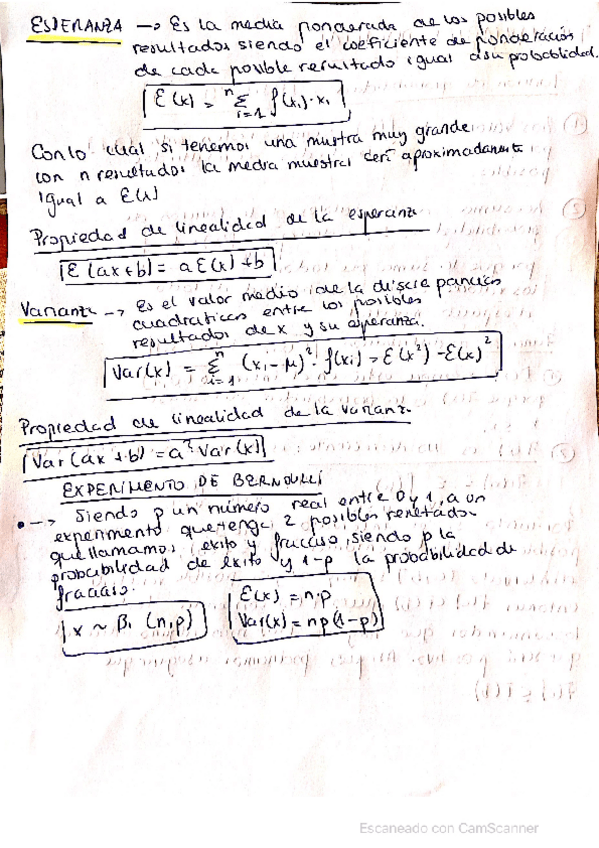 ESPERANZA —> Es la media ponderada de los posibles
resultados siendo el coeficiente de ponderación
de cada posible resultado igual a su probabilidad.
E(x) = n Σ i=1 f(xi)·xi
Con lo cual si tenemos una mustra muy grande
con n resultados la media muestral será aproximadamente
igual a E(x)
Propiedad de linealidad de la esperanza
E(ax+b) = aE(x)+b
Varianza —> Es el valor medio de la discrepancias
cuadraticas entre los posibles
resultados de x y su esperanza.
Var(x) = n Σ i=1 (xi-μ)²·f(xi) = E(x²)-E(x)²
Propiedad de linealidad de la varianza
Var(ax+b) = a²Var(x)
EXPERIMENTO DE BERNOULLI
• —> Siendo p un número real entre 0 y 1, a un
experimento que tenga 2 posibles resultados
que llamamos exito y fracaso, siendo p la
probabilidad de éxito y 1-p la probabilidad de
fracaso.
x ~ Bi (n,p)
E(x) = n·p
Var(x) = np(1-p)
Escaneado con CamScanner